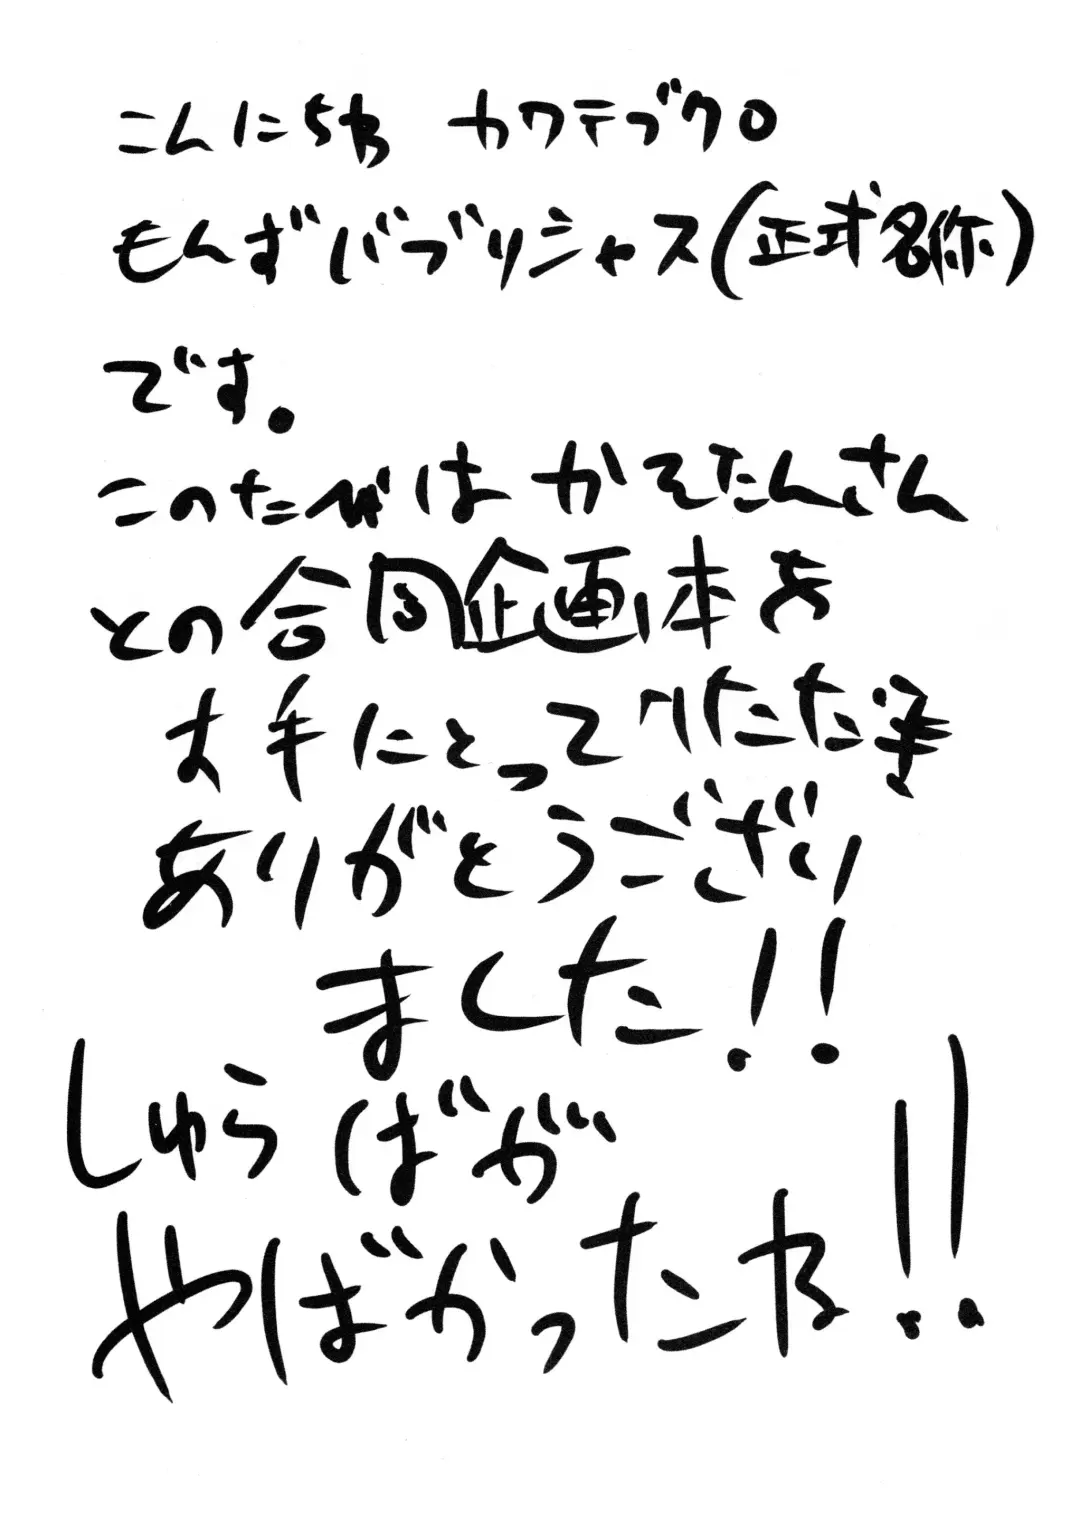 こんにちわ カワテブクロ
もんずバブリシャス(正式名称)
です。
このたびは かえたんさん
との合同企画本を
お手にとっていただき
ありがとうございり
ました!!
しゅらばが
やばかったね!!